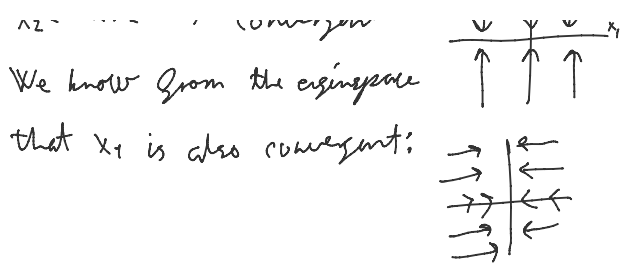 x₁
We know from the eiginspace
that x₁ is also convergant: